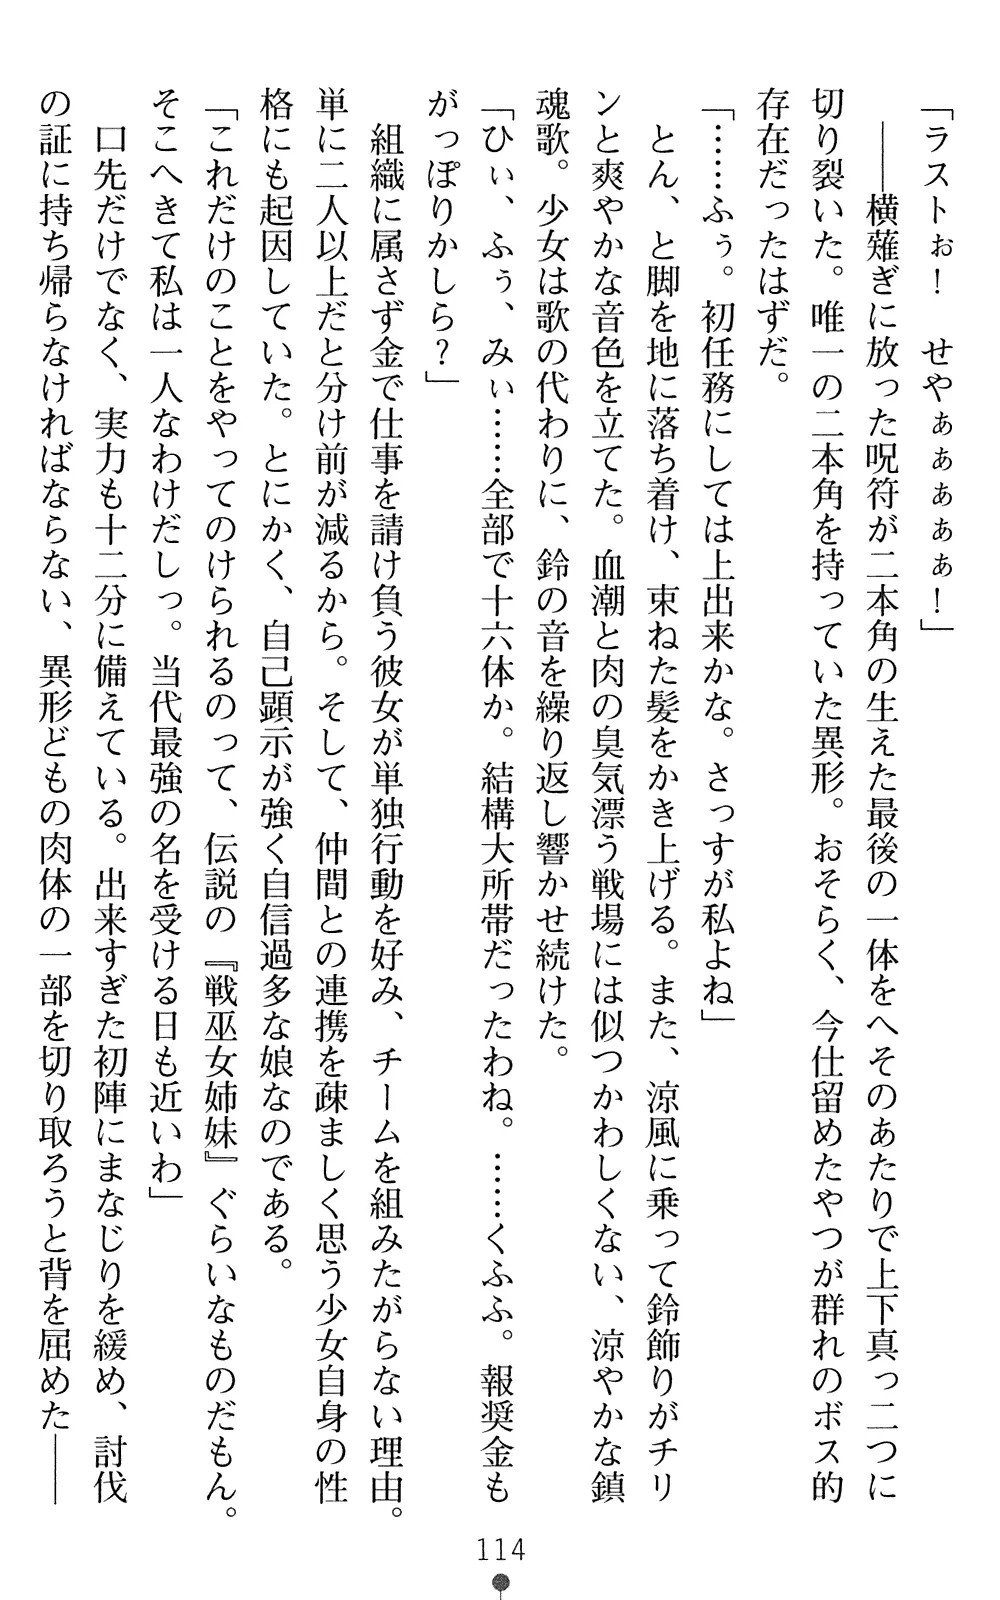 「ラストぉ！　せやぁぁぁぁぁ！」
――横薙ぎに放った呪符が二本角の生えた最後の一体をへそのあたりで上下真っ二つに
切り裂いた。唯一の二本角を持っていた異形。おそらく、今仕留めたやつが群れのボス的
存在だったはずだ。
「……ふぅ。初任務にしては上出来かな。さっすが私よね」
とん、と脚を地に落ち着け、束ねた髪をかき上げる。また、涼風に乗って鈴飾りがチリ
ンと爽やかな音色を立てた。血潮と肉の臭気漂う戦場には似つかわしくない、涼やかな鎮
魂歌。少女は歌の代わりに、鈴の音を繰り返し響かせ続けた。
「ひぃ、ふぅ、みぃ……全部で十六体か。結構大所帯だったわね。……くふふ。報奨金も
がっぽりかしら？」
組織に属さず金で仕事を請け負う彼女が単独行動を好み、チームを組みたがらない理由。
単に二人以上だと分け前が減るから。そして、仲間との連携を疎ましく思う少女自身の性
格にも起因していた。とにかく、自己顕示が強く自信過多な娘なのである。
「これだけのことをやってのけられるのって、伝説の『戦巫女姉妹』ぐらいなものだもん。
そこへきて私は一人なわけだしっ。当代最強の名を受ける日も近いわ」
口先だけでなく、実力も十二分に備えている。出来すぎた初陣にまなじりを緩め、討伐
の証に持ち帰らなければならない、異形どもの肉体の一部を切り取ろうと背を屈めた――
114